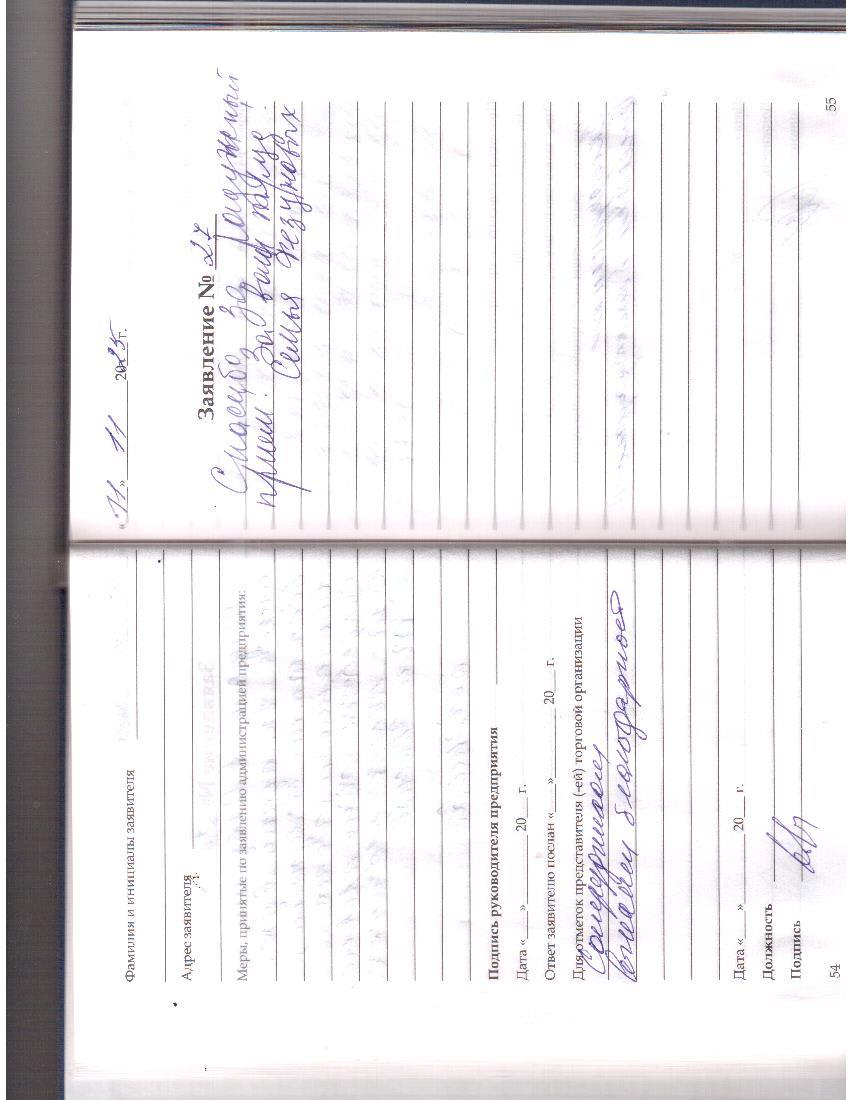 Фамилия и инициалы заявителя
Адрес заявителя
Меры, принятые по заявлению администрацией предприятия:
Подпись руководителя предприятия
Дата «___» ______ 20___ г.
Ответ заявителю послан «___» ______ 20___ г.
Для отметок представителя (-ей) торговой организации
Сотрудникам
благодарность
Дата «___» ______ 20___ г.
Должность
Подпись
54
«11» 11 2025 г.
Заявление № 27
Спасибо за радушный
прием. За вашу
Семья
55